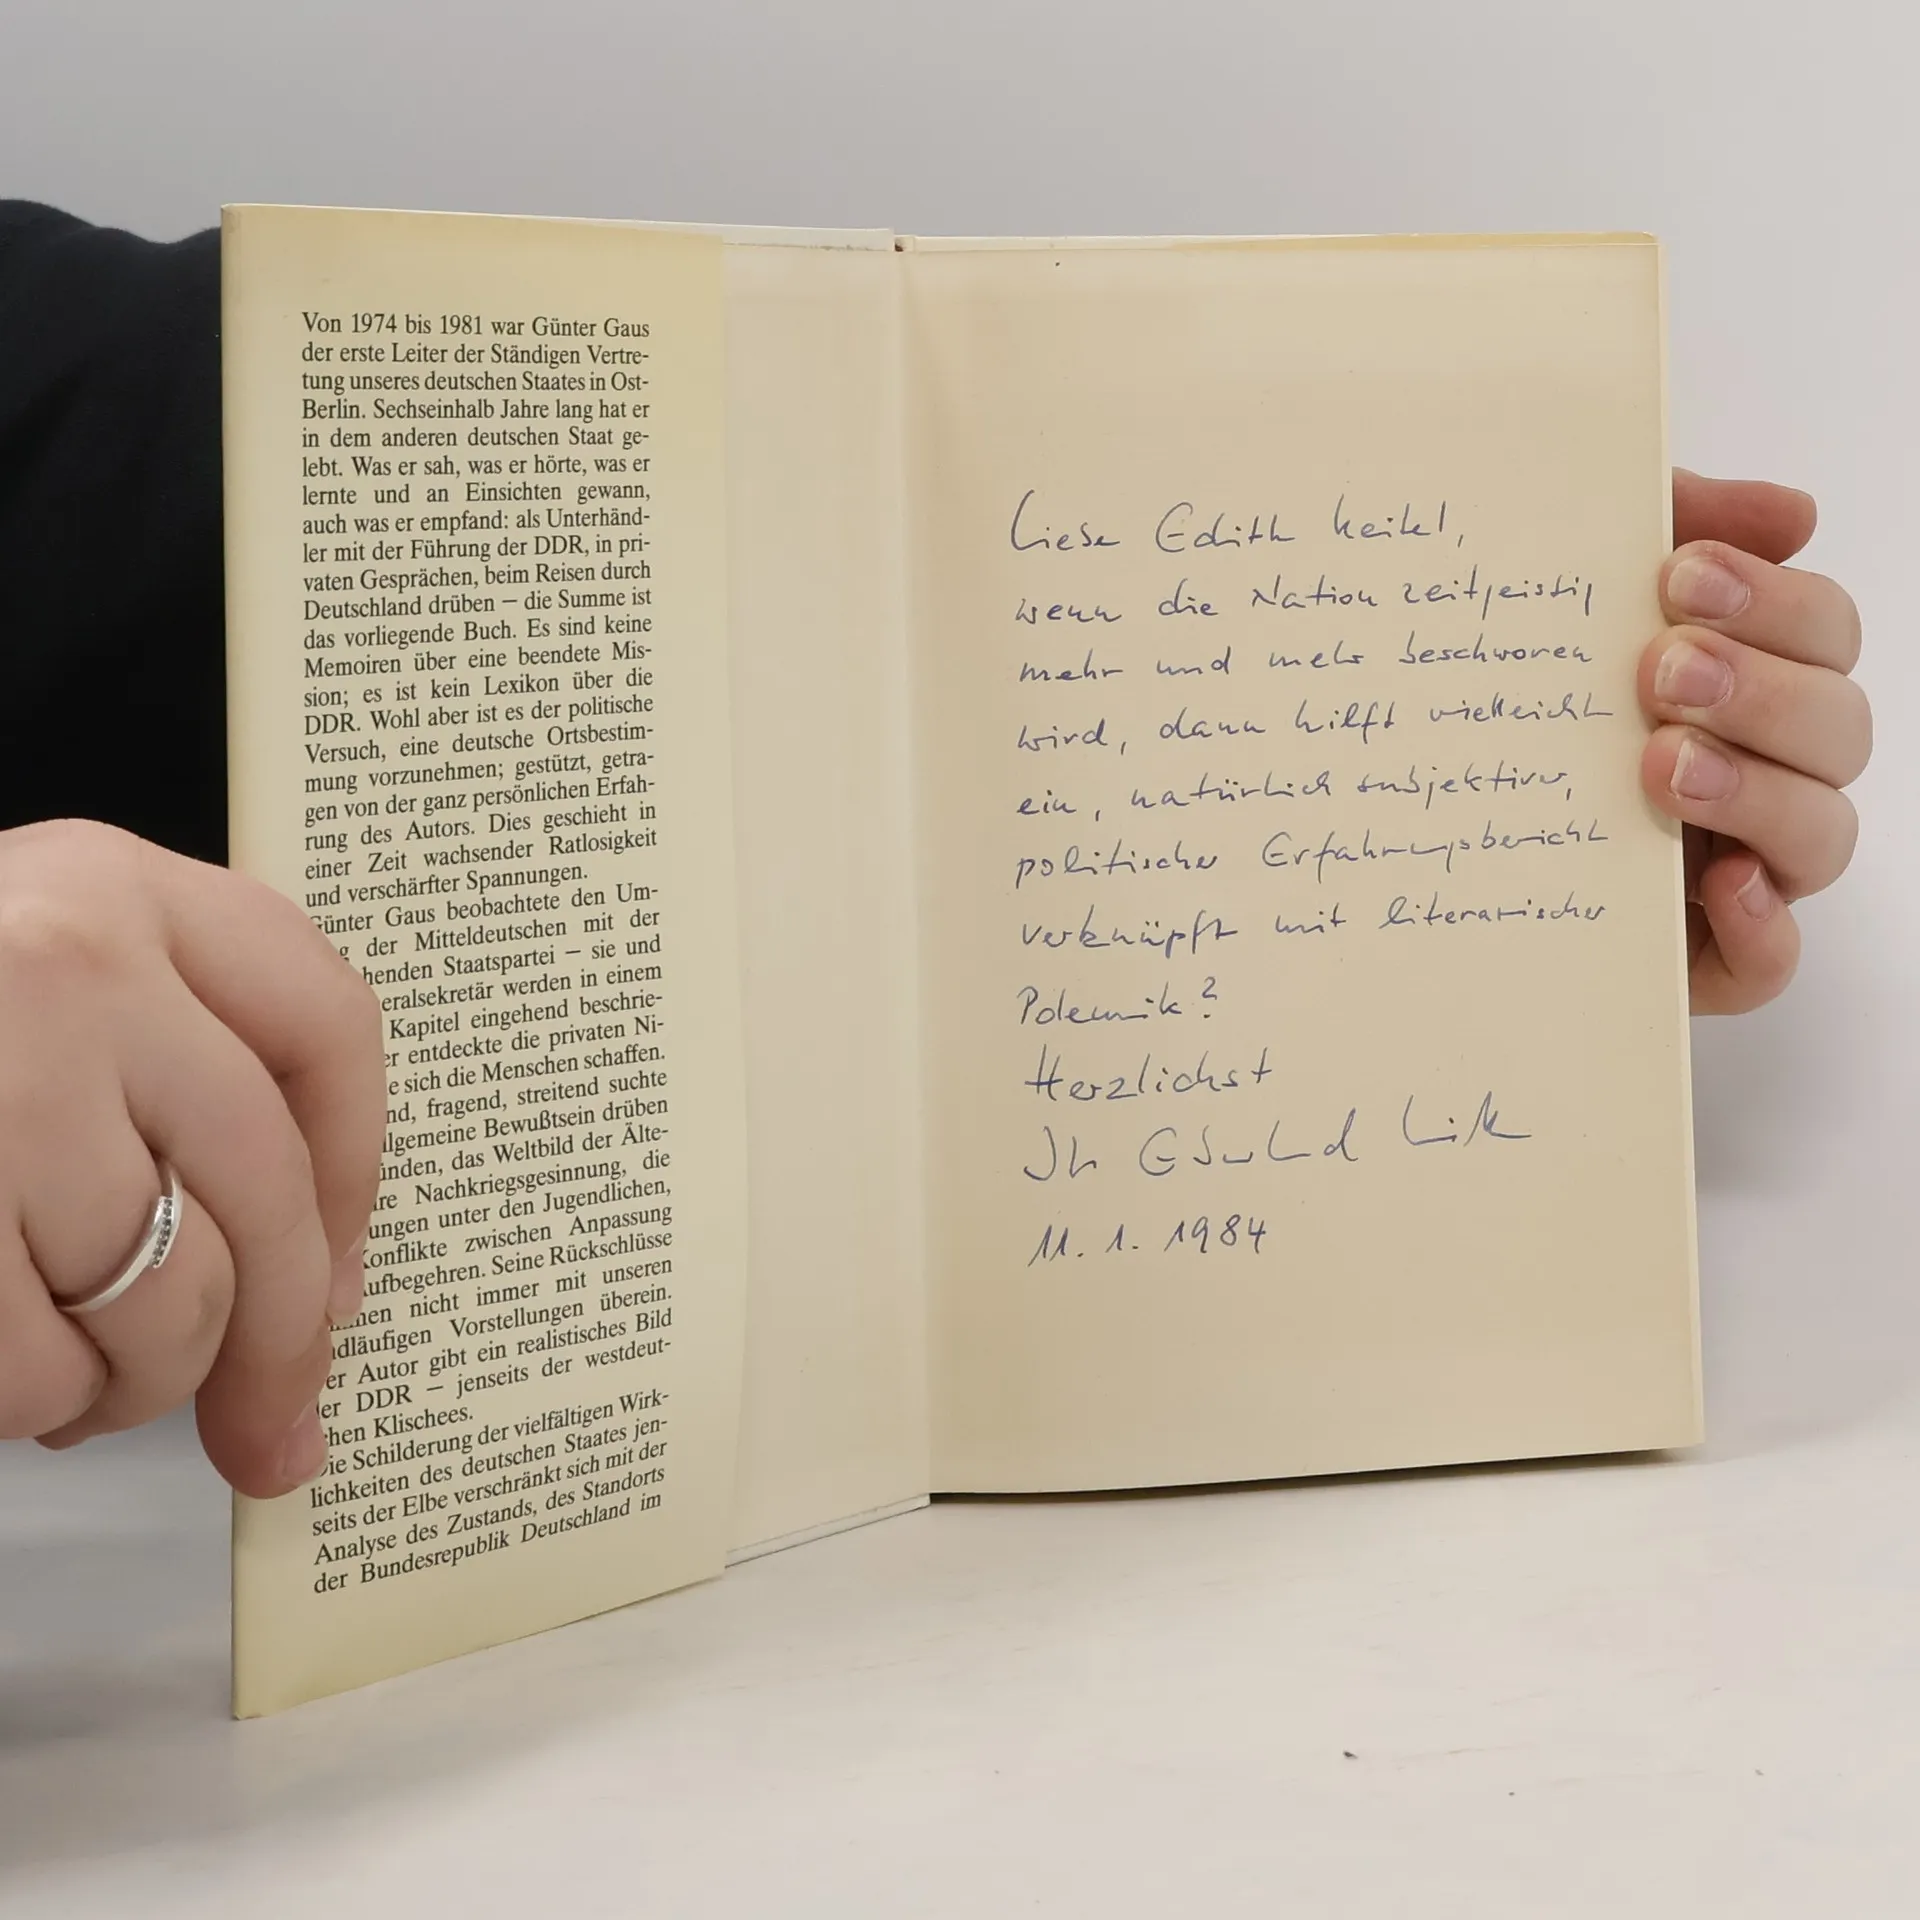 Von 1974 bis 1981 war Günter Gaus
der erste Leiter der Ständigen Vertre-
tung unseres deutschen Staates in Ost-
Berlin. Sechseinhalb Jahre lang hat er
in dem anderen deutschen Staat ge-
lebt. Was er sah, was er hörte, was er
lernte und an Einsichten gewann,
auch was er empfand: als Unterhänd-
ler mit der Führung der DDR, in pri-
vaten Gesprächen, beim Reisen durch
Deutschland drüben – die Summe ist
das vorliegende Buch. Es sind keine
Memoiren über eine beendete Mis-
sion; es ist kein Lexikon über die
DDR. Wohl aber ist es der politische
Versuch, eine deutsche Ortsbestim-
mung vorzunehmen; gestützt, getra-
gen von der ganz persönlichen Erfah-
rung des Autors. Dies geschieht in
einer Zeit wachsender Ratlosigkeit
und verschärfter Spannungen.
Günter Gaus beobachtete den Um-
g der Mitteldeutschen mit der
henden Staatspartei – sie und
eralsekretär werden in einem
Kapitel eingehend beschrie-
er entdeckte die privaten Ni-
e sich die Menschen schaffen.
nd, fragend, streitend suchte
llgemeine Bewußtsein drüben
ünden, das Weltbild der Älte-
re Nachkriegsgesinnung, die
ungen unter den Jugendlichen,
Konflikte zwischen Anpassung
ufbegehren. Seine Rückschlüsse
men nicht immer mit unseren
dläufigen Vorstellungen überein.
er Autor gibt ein realistisches Bild
er DDR – jenseits der westdeut-
chen Klischees.
Die Schilderung der vielfältigen Wirk-
lichkeiten des deutschen Staates jen-
seits der Elbe verschränkt sich mit der
Analyse des Zustands, des Standorts
der Bundesrepublik Deutschland im
Liebe Edith Keitel,
wenn die Nation zeitgeistig
mehr und mehr beschworen
wird, dann hilft vielleicht
ein, natürlich subjektiver,
politischer Erfahrungsbericht
verknüpft mit literarischer
Polemik?
Herzlichst
Ihr
11. 1. 1984